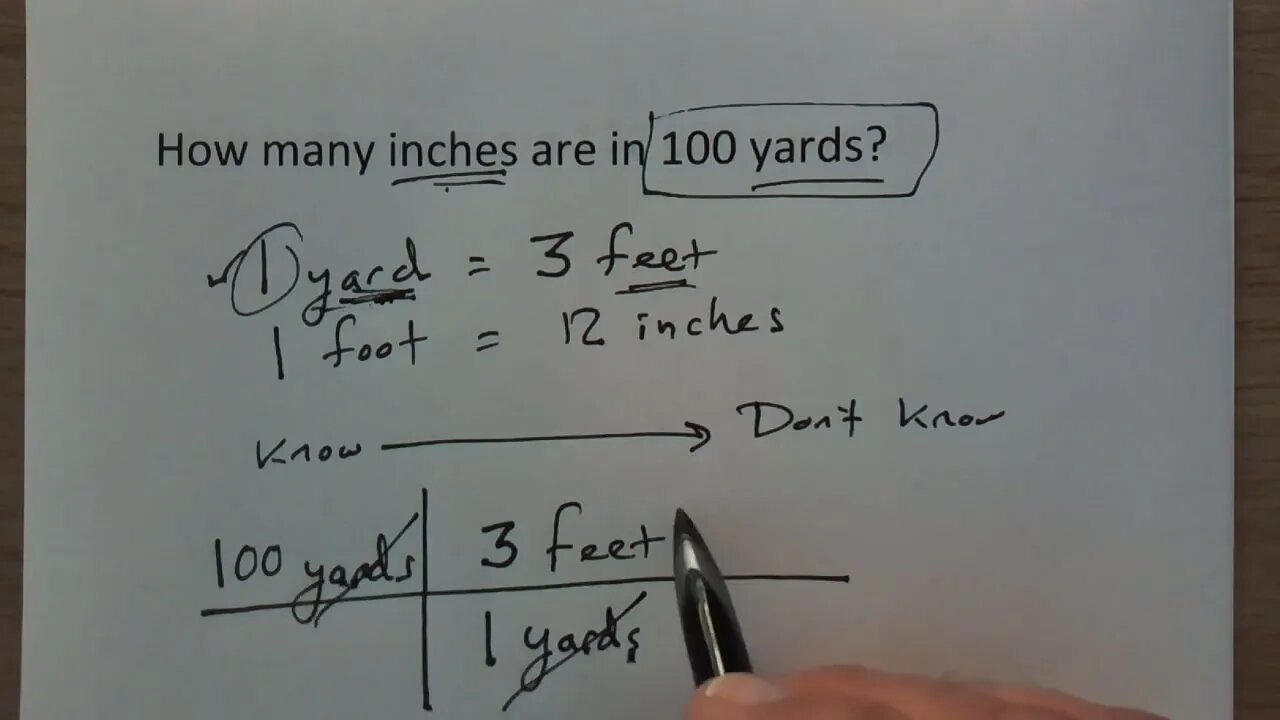 How many inches are in 100 yards?
1 yard = 3 feet
1 foot = 12 inches
Know Don't Know
100 yards 3 feet
1 yards